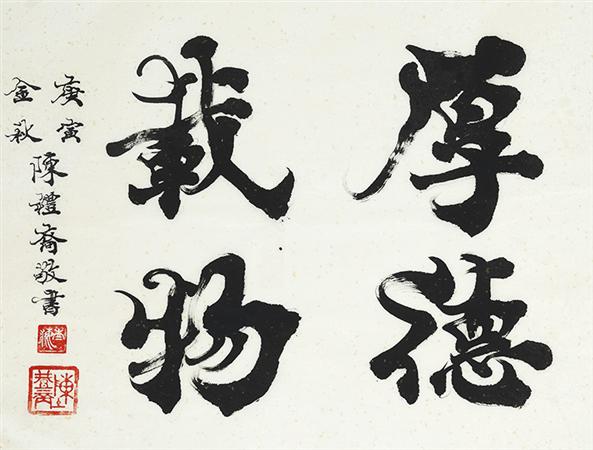 厚德
載物
庚寅
金秋
陳禮裔敬書